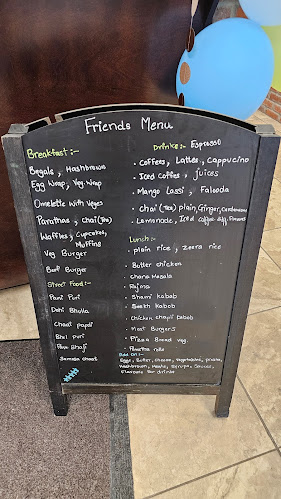 Friends Menu
Breakfast :-
Begals, Hashbrowns
Egg Wrap, Veg. Wrap
Omelette with Veges
Parathas, chai (Tea)
Waffles, Cupcakes,
Muffins
Veg Burger
Beef Burger
Street Food:-
Pani Puri
Dahi Bhalla
Chaat papdi
Bhel puri
Pave Bhaji
Samosa Chaat
Drinks:- Espresso
• Coffers, Lattes, Cappucino
• Iced Coffee, juices
• Mango Lassi, Falooda
• chai (Tea) plain, Ginger, Cardamom
• Lemonade, Iced coffee diff. flavours
Lunch :-
• plain rice, zeera rice
• Butter chicken
• Chana Masala
• Rajma
• Shami kabab
• Seekh Kabab
• Chicken chapli kabab
• Meat Burgers
• Pizza Bread veg.
• Paratha rolls
Add On :-
Eggs, Butter, Cheese, Vegetables,
Hashbrown, Syrups, Sauces,
for drinks